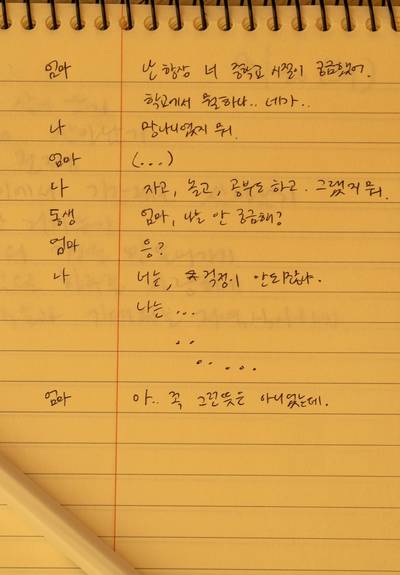 엄마 난 항상 너 중학교 시절이 궁금했어.
학교에서 뭐하나.. 네가..
나 망나니였지 뭐.
엄마 (...)
나 자고, 놀고, 공부도 하고. 그랬지 뭐.
동생 엄마, 나는 안 궁금해?
엄마 응?
나 너는, 걱정이 안되잖아.
나는 ...
..
.. ...
엄마 아.. 꼭 그런뜻은 아니었는데.